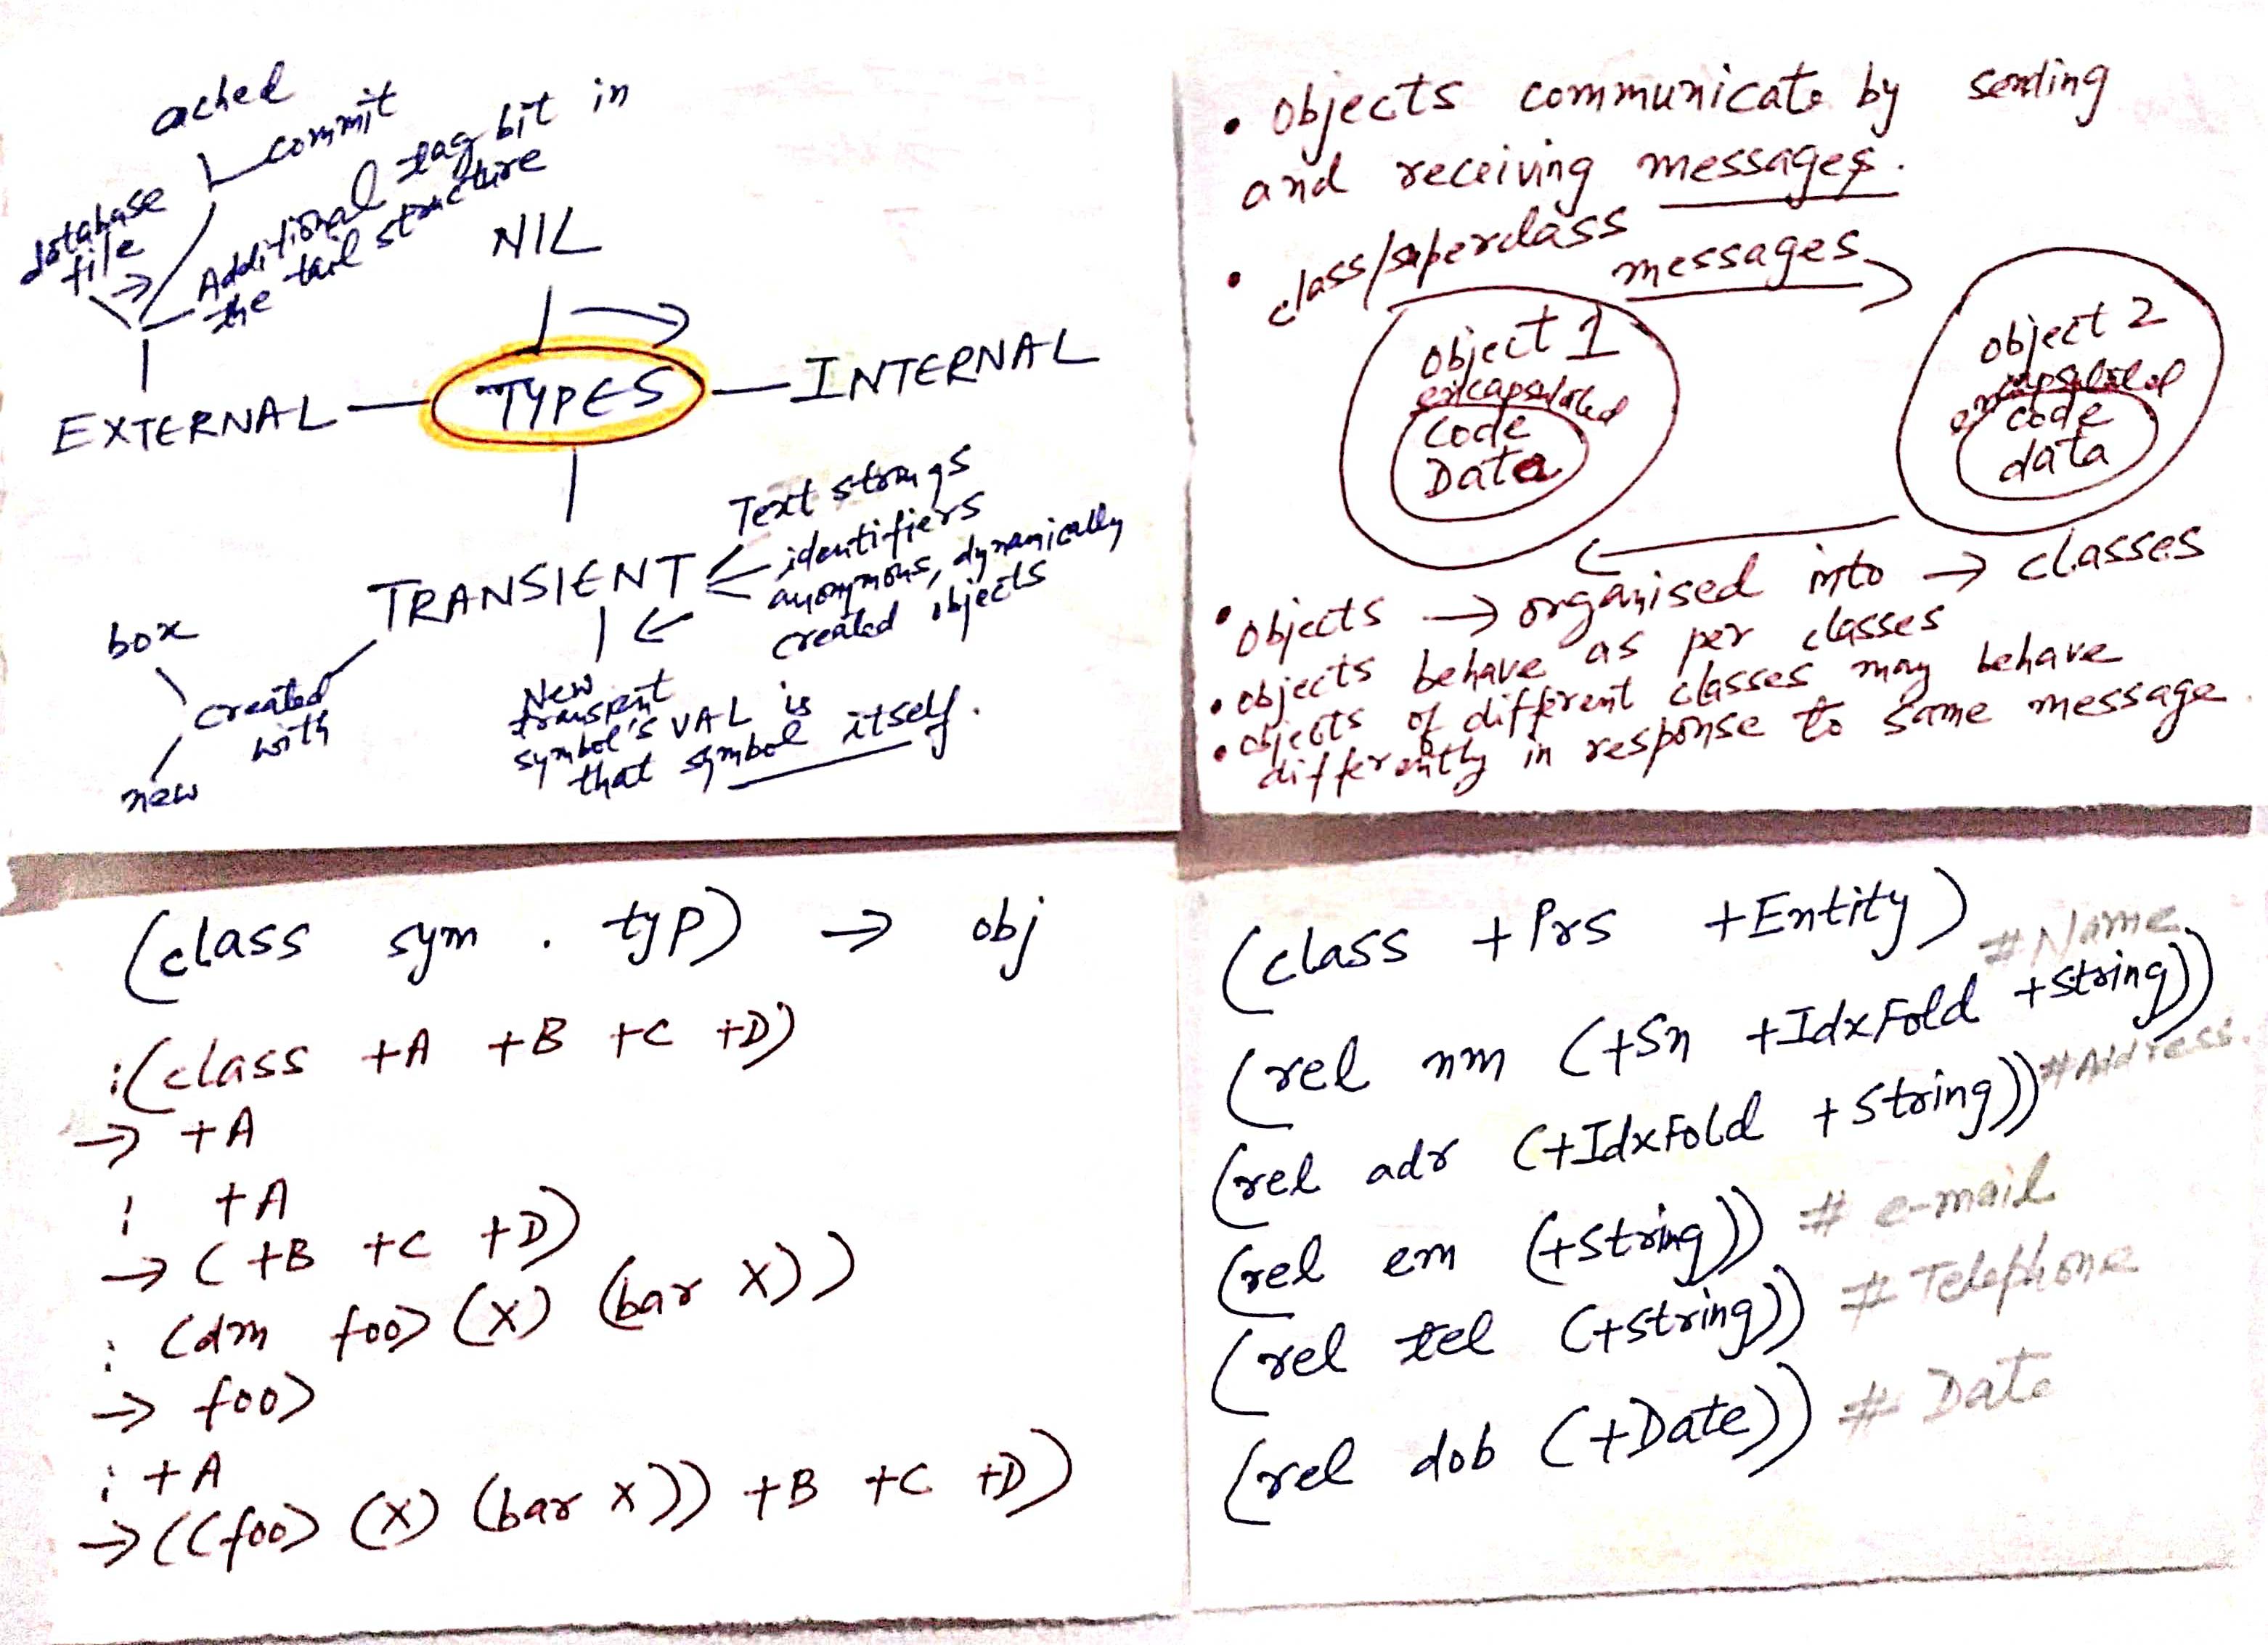 ached
commit
database
file
Additional tag bit in
the tail structure
NIL
EXTERNAL
TYPES
INTERNAL
TRANSIENT
Text strings
identifiers
anonymous, dynamically
created objects
box
created
with
new
New
transient
symbol's VAL is
that symbol itself.
• objects communicate by sending
and receiving messages.
• class/superclass
messages
object 1
encapsulated
Code
Data
object 2
encapsulated
code
data
• objects → organised into → classes
• objects behave as per classes
• objects of different classes may behave
differently in response to same message.
(class sym . typ) → obj
:(class +A +B +C +D)
→ +A
: +A
→ (+B +C +D)
: (dm foo> (X) (bar X))
→ foo>
: +A
→ ((foo> (X) (bar X)) +B +C +D)
(class +Prs +Entity)
(rel nm (+Sn +IdxFold +String)) #Name
(rel adr (+IdxFold +String)) #Address.
(rel em (+String)) # e-mail
(rel tel (+String)) # Telephone
(rel dob (+Date)) # Date